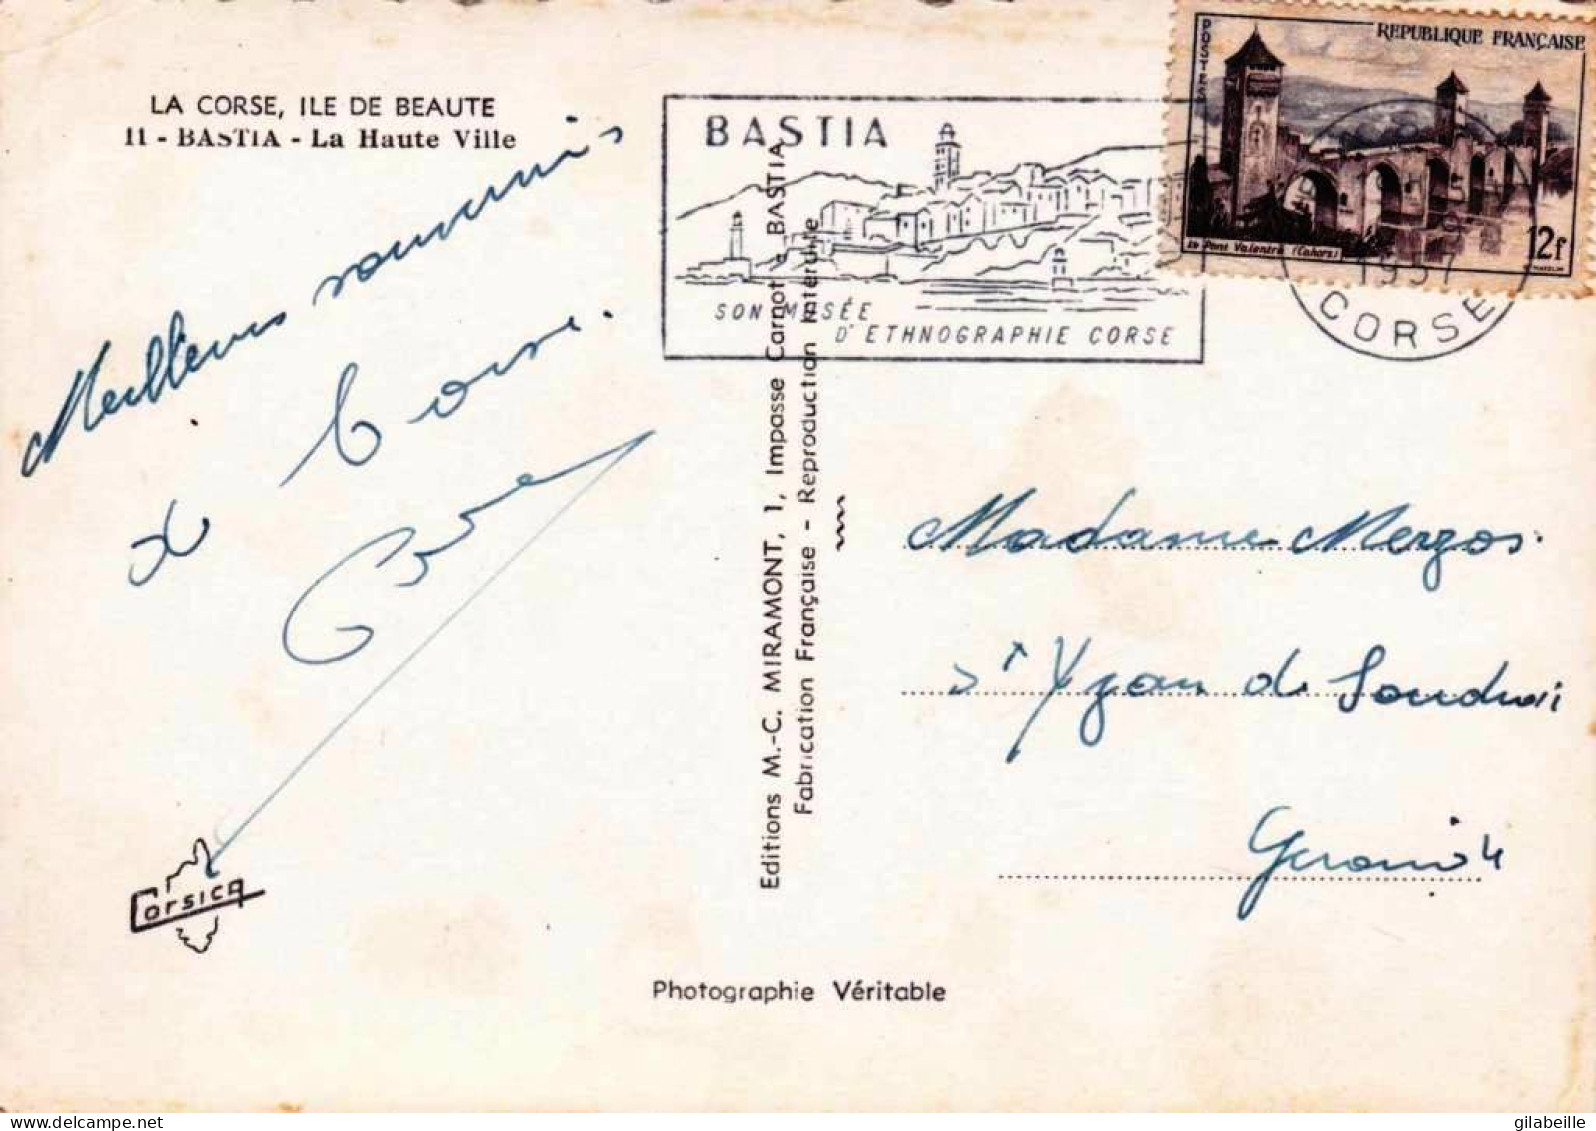 LA CORSE, ILE DE BEAUTE
11 - BASTIA - La Haute Ville
Meilleurs souvenirs
de Corse.
Corsica
Editions M.-C. MIRAMONT, 1, Impasse Carnot - BASTIA
Fabrication Française - Reproduction Interdite
Photographie Véritable
BASTIA
SON MUSÉE
D'ETHNOGRAPHIE CORSE
POSTES
REPUBLIQUE FRANÇAISE
Le Pont Valentré (Cahors)
12f
1957
CORSE
Madame Merzos
St Yzan de Soudiac
Gironde
gilabeille